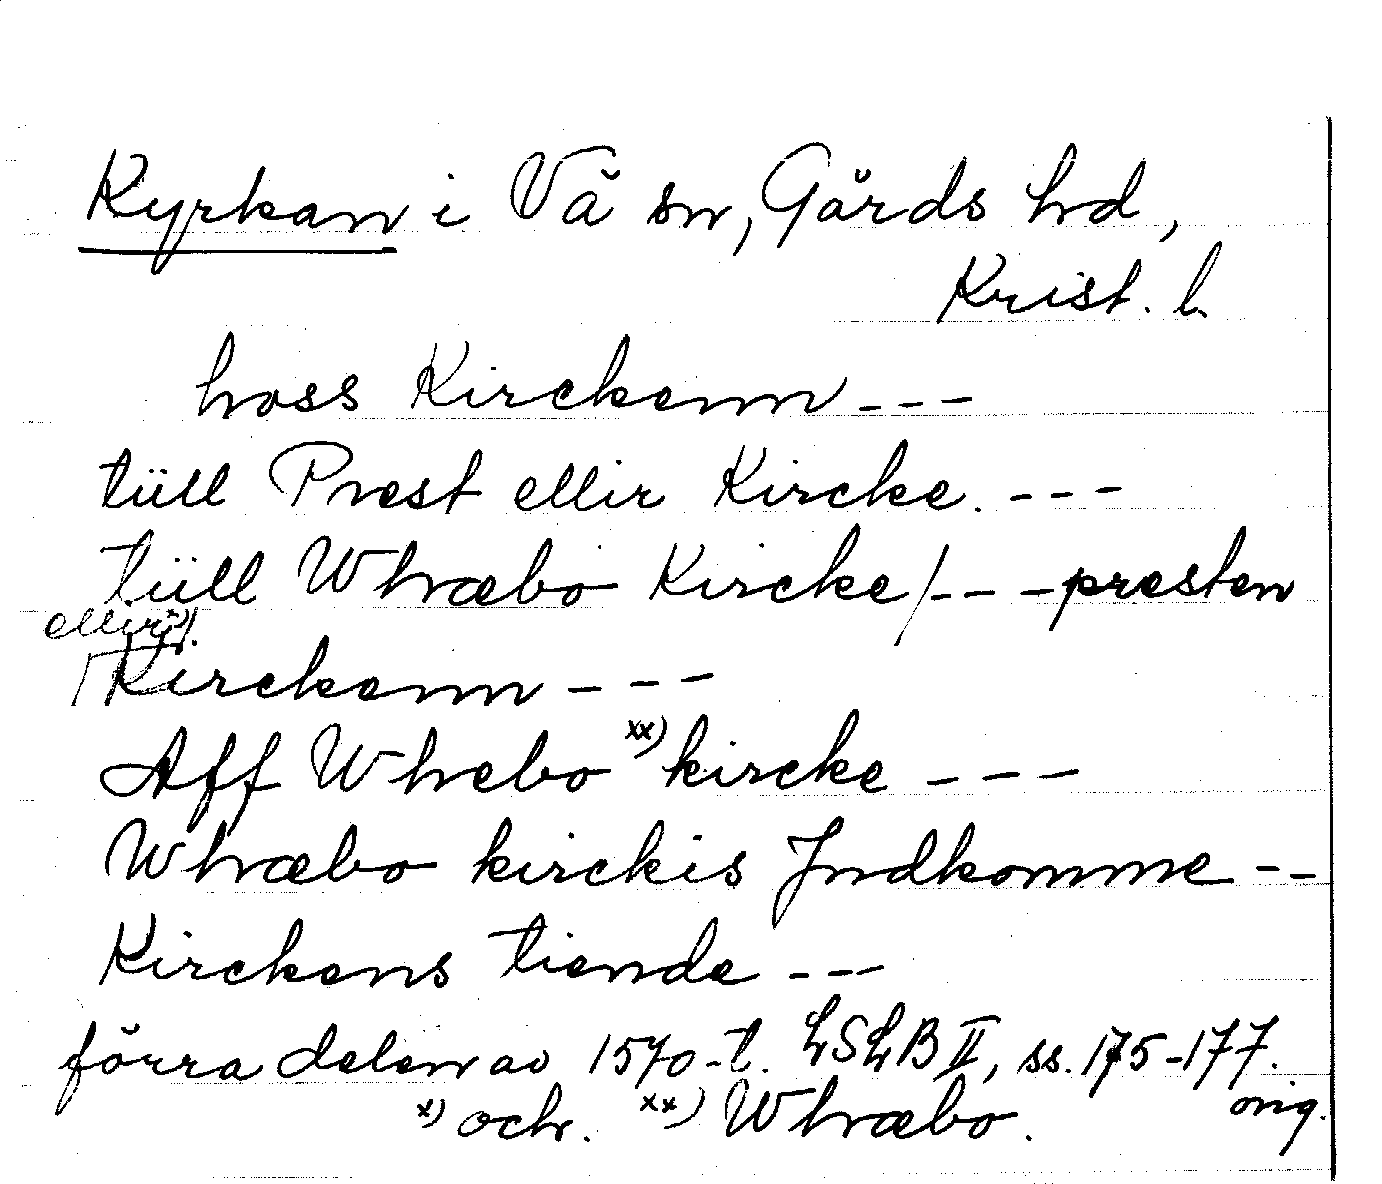 Kyrkan i Vä sn, Gärds hd,
Krist. l.
hoss Kirckenn ---
tüll Prest ellir Kircke. ---
tüll Whræbo Kircke/--- presten
ellir x)
Kirckenn ---
Aff Whrebo xx) kircke ---
Whræbo kirckis Jndkomme --
Kirckens tiende ---
förra delen av 1570-t. LSLB II, ss. 175-177.
orig.
x) och. xx) Whræbo.